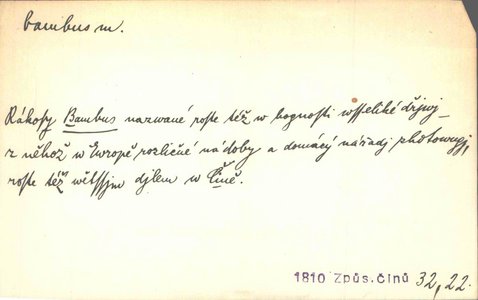 bambus m.
Rákosy Bambus nazwané roste též w hognosti wsseliké dřjwj
z něhož w Ewropě rozličné nádoby a domácý nářadj zhotowugj,
roste též wětssjm djlem w Číně.
1810 Způs.Čínů 32, 22.